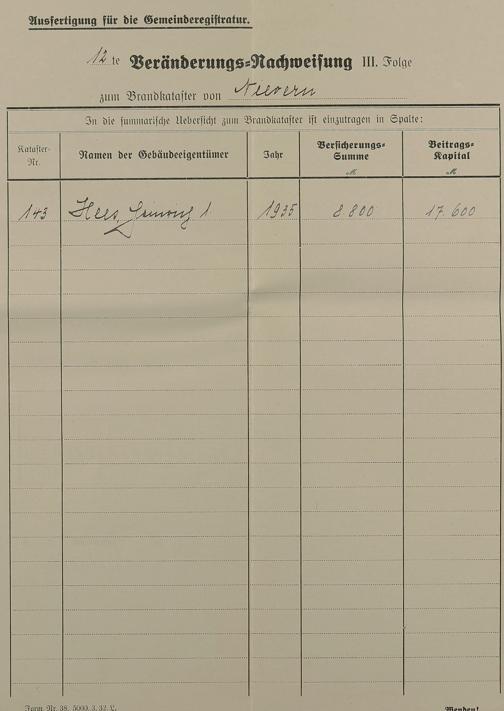 Ausfertigung für die Gemeinderegistratur.
12 te Veränderungs-Nachweisung III. Folge
zum Brandkataster von Nievern
In die summarische Uebersicht zum Brandkataster ist einzutragen in Spalte:
Kataster-Nr. Namen der Gebäudeeigentümer Jahr Versicherungs-Summe ℳ Beitrags-Kapital ℳ
143 Hees, Heinrich 1. 1935 8 800 17 600
Form. Nr. 38. 5000. 3. 32. L. Wenden!